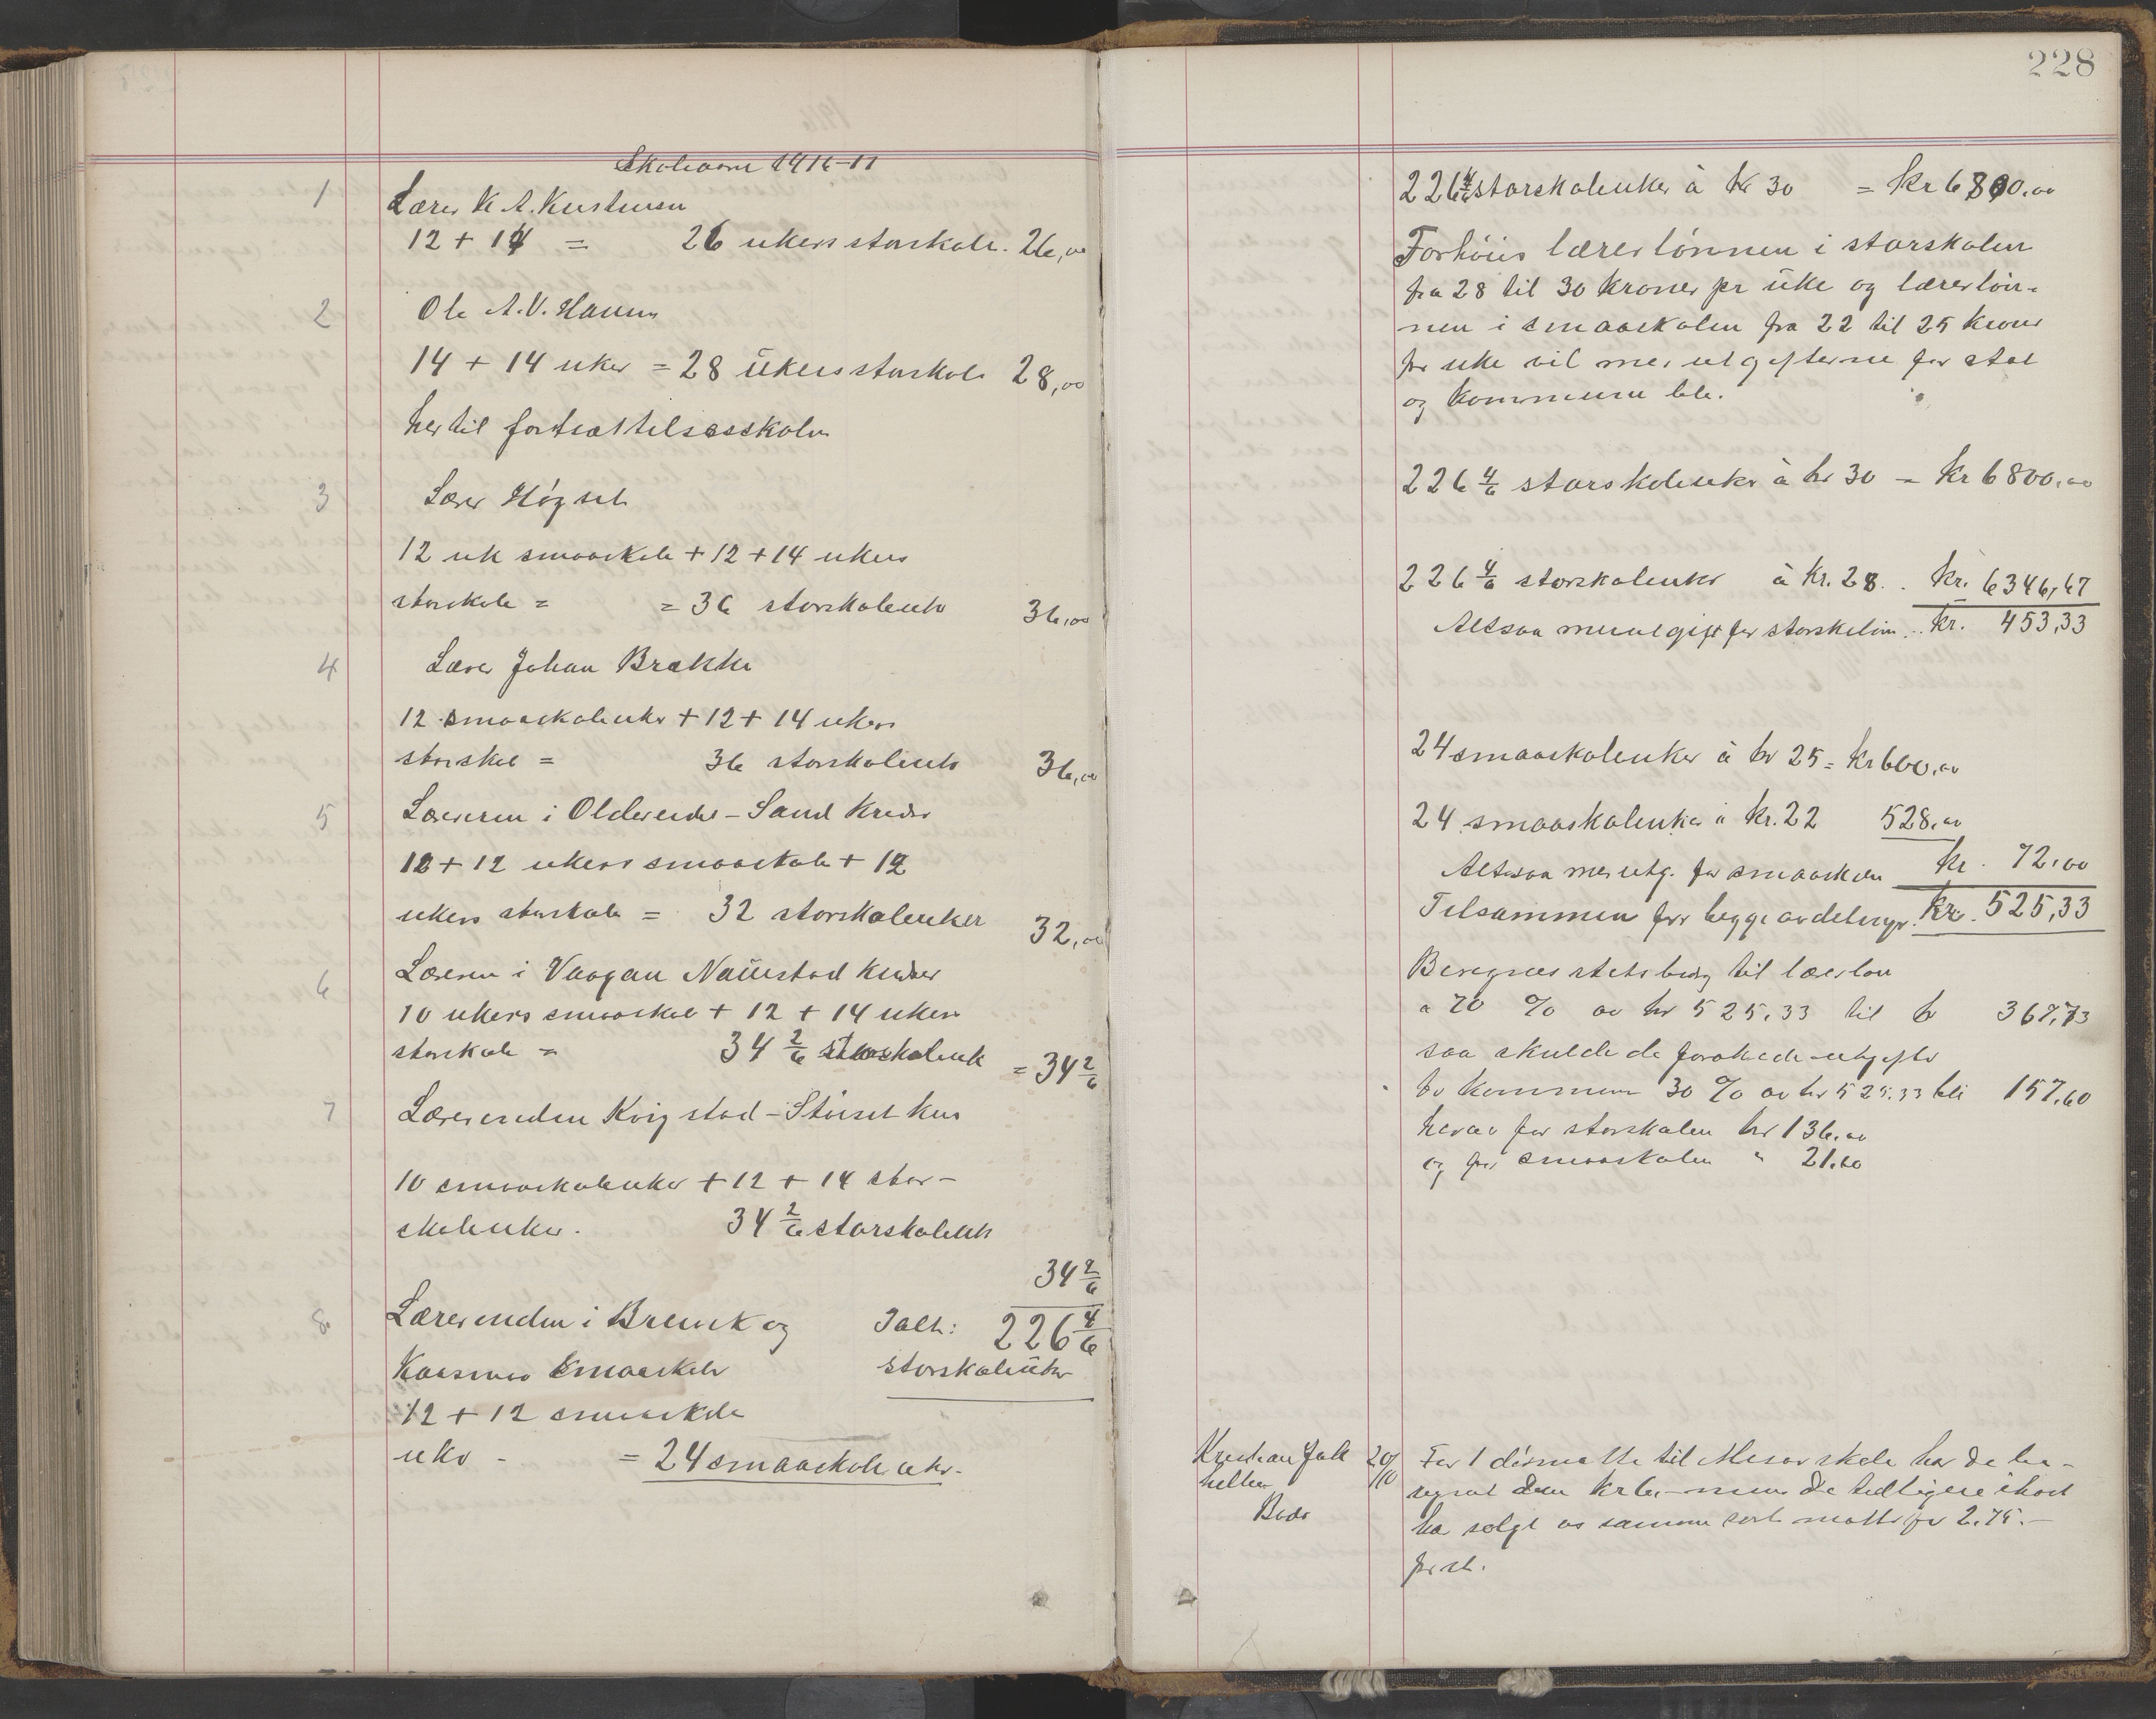 Skoleaaret 1916-17
1 Lærer K A. Kristensen
12 + 14 = 26 ukers storskole. 26,00
2 Ole A. V. Hansen
14 + 14 uker = 28 ükers storskole 28,00
hertil fortsættelsesskolen
3 Lærer Høgset
12 uk smaaskole + 12 + 14 ukers
storskole = = 36 storskoleuk 36,00
4 Lærer Johan Brække
12 smaaskoleuker + 12 + 14 ukers
storskol = 36 storskoleuk 36,00
5 Læreren i Oldereidet - Sand Kreds
12 + 12 ukers smaaskole + 12
ukers storskole = 32 storskoleuker 32,00
6 Læreren i Vaagan Naüestad kredser
10 ukers smaaskol + 12 + 14 ukers
storskole = 34 2/6 storskoleuk = 34 2/6
7 Lærerinden Kvigstad - Störset kres
10 smaaskoleuker + 12 + 14 stor-
skoleuker. 34 2/6 storskoleuk
34 2/6
8. Lærerinden i Breivik og Ialt: 226 4/6
Kaasmo smaaskole storskoleüker
12 + 12 smaaskole
uker - = 24 smaaskoleuker.
228
226 4/6 storskoleuker à kr 30 = kr 6800.00
Forhöies lærerlönnen i storskolen
fra 28 til 30 kroner pr üke og lærerlön-
nen i smaaskolen fra 22 til 25 kroner
pr uke vil merutgifterne for stat
og kommune bli.
226 4/6 storskoleuker à kr 30 = kr 6800,00
226 4/6 storskoleuker à kr. 28. kr. 6346,67
Altsaa merutgift for storskolen kr. 453,33
24 smaaskoleuker à kr 25 = kr 600,00
24 smaaskoleuker à kr. 22 528,00
Altsaa merutg. for smaaskolen kr. 72,00
Tilsammen for begge avdelinger. Kr. 525,33
Beregnes statsbidrag til lærerløn
a 70 % av kr 525,33 til kr 367,73
saa skulde de forøkede utgifter
for kommunen 30 % av kr 525.33 bli 157,60
herav for storskolen kr 136.00
og for smaaskolen " 21.60
Kristian Falk 20/10 For 1 dørmatte til Misvær skole har De be-
regnet Dem kr 6,- men De tidligere
Bodø har solgt os samme sort matter for 2.75.-
pr st.